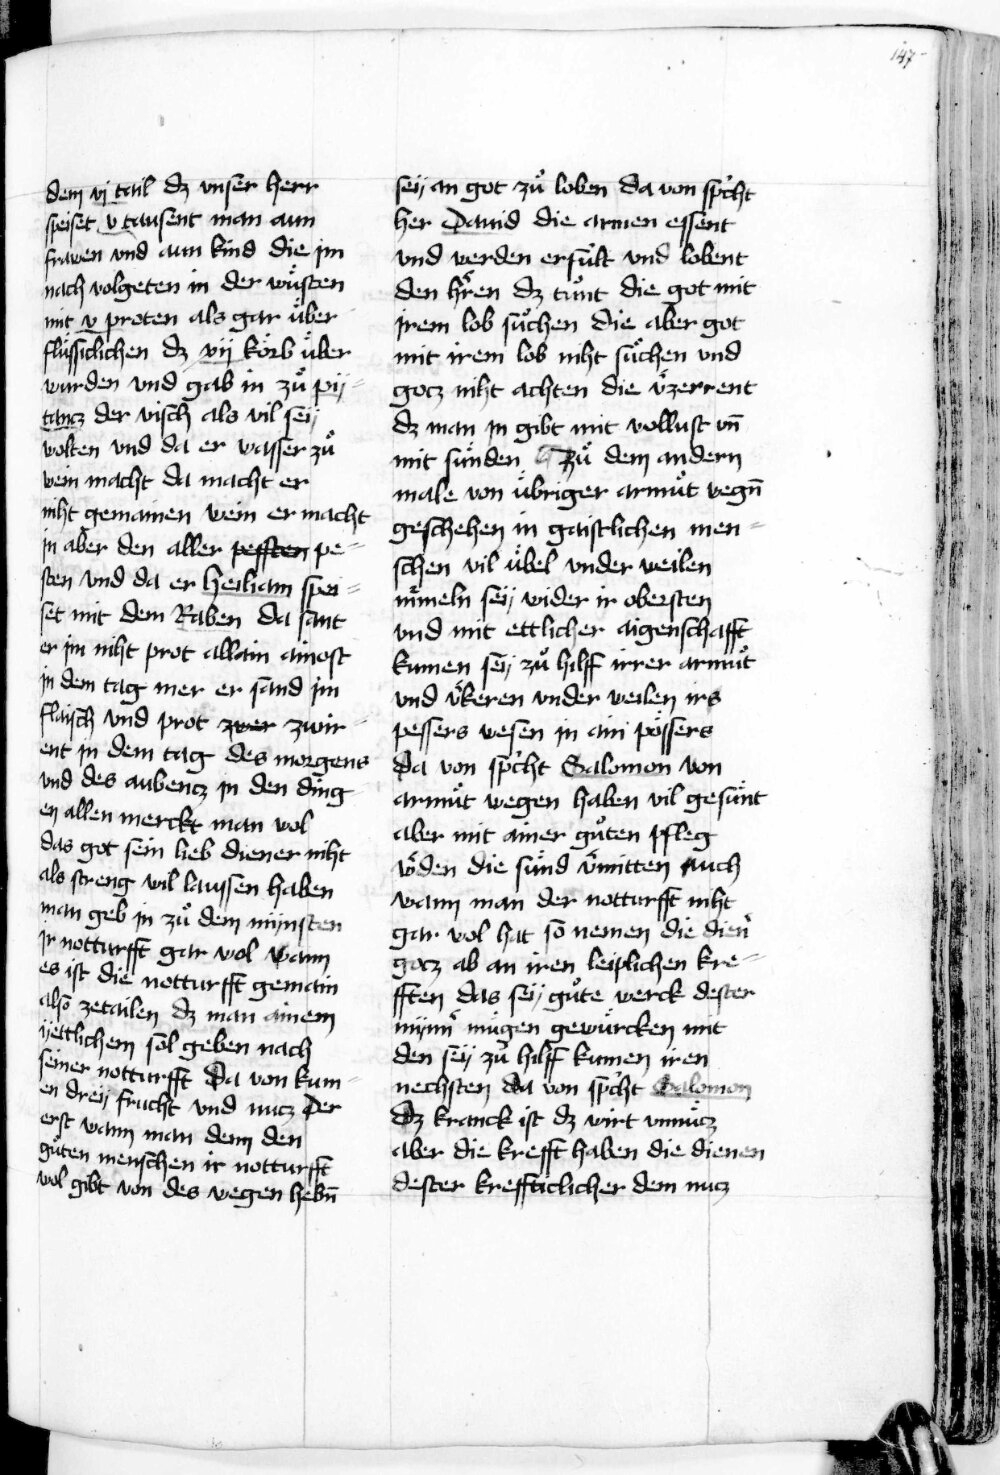 147
dem vj tail dz vnser herr
speiset v tausent man aun
frawen vnd aun kind die jm
nach volgeten in der wuͤsten
mit v proten als gar uͤber
fluͤssiclichen dz xij koͤrb uͤber
wurden vnd gab in zuͦ pij=
tancz der visch als vil seij
wolten vnd da er wasser zuͦ
wein macht da macht er
niht gemainen wein er macht
jn aber den aller peffsten pe=
sten vnd da er Heiliam spei=
set mit dem Raben da sant
er jm niht prot allain ainost
jn dem tag mer er sand jm
flaisch vnd prot zwer zwir=
ent jn dem tag des morgens
vnd des aubencz jn den ding
en allen merckt man wol
das got sein lieb diener niht
als streng wil laussen haben
man geb jn zuͦ dem mijnsten
jr notturfft gar wol wann
es ist die notturfft gemain
also zetailen dz man ainem
ijettlichem sol geben nach
seiner notturfft Da von kum=
en dreij frucht vnd nucz Der
erst wann man dem den
guͦten menschen ir notturfft
wol gibt von des wegen hebn̄
seij an got zuͦ loben da von sp̓cht
her Dauid die armen essent
vnd werden erfuͤlt vnd lobent
den hr̓en dz tuͦnt die got mit
jrem lob suͦchen die aber got
mit irem lob niht suͦchen vnd
gocz niht achten die v̓zerrent
dz man jn gibt mit wollust vn̄
mit suͤnden Zuͦ dem andern
male von uͤbriger armuͦt wegn̄
geschehen in gaistlichen men=
schen vil uͤbel vnder weilen
muͤmeln seij wider ir obersten
vnd mit ettlicher aigenschafft
kumen seij zuͦ hilff irrer armuͦt
vnd v̓keren vnder weilen irs
pessers wesen in ain poͤssers
da von sp̓cht Salomon von
armuͦt wegen haben vil gesuͤnt
aber mit ainer guͦten pfleg
w̓den die suͤnd v̓mitten Auch
wann man der notturfft niht
gar wol hat so nemen die dien̓
gocz ab an iren leiplichen kre=
fften das seij guͦte werck dester
mijnn̓ muͤgen gewuͤrcken mit
den seij zuͦ hilff kumen iren
nechsten da von sp̓cht Salomon
Dz kranck ist dz wirt vnnuͤcz
aber die krefft haben die dienen
dester kreffticlicher dem nucz